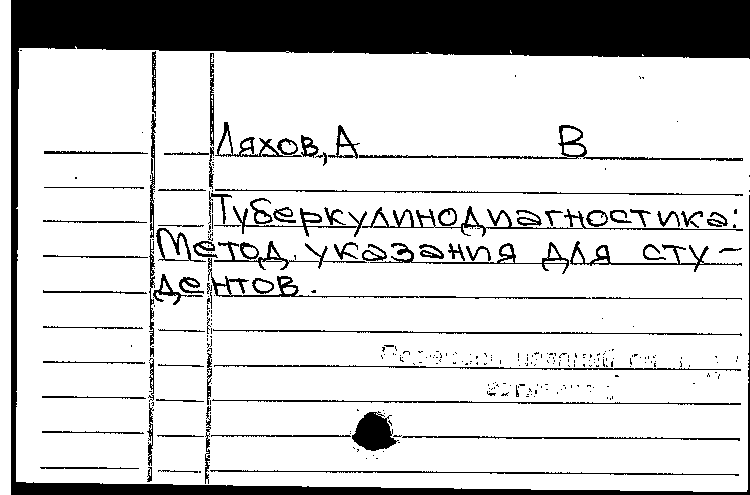 Ляхов, А В
Туберкулинодиагностика:
Метод. указания для сту-
дентов.